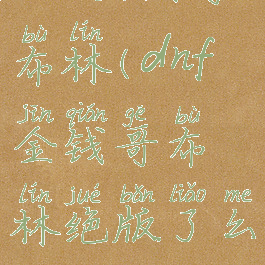 bù lín
布林(dnf
jīn qián gē bù
金钱哥布
lín jué bǎn liǎo me
林绝版了么